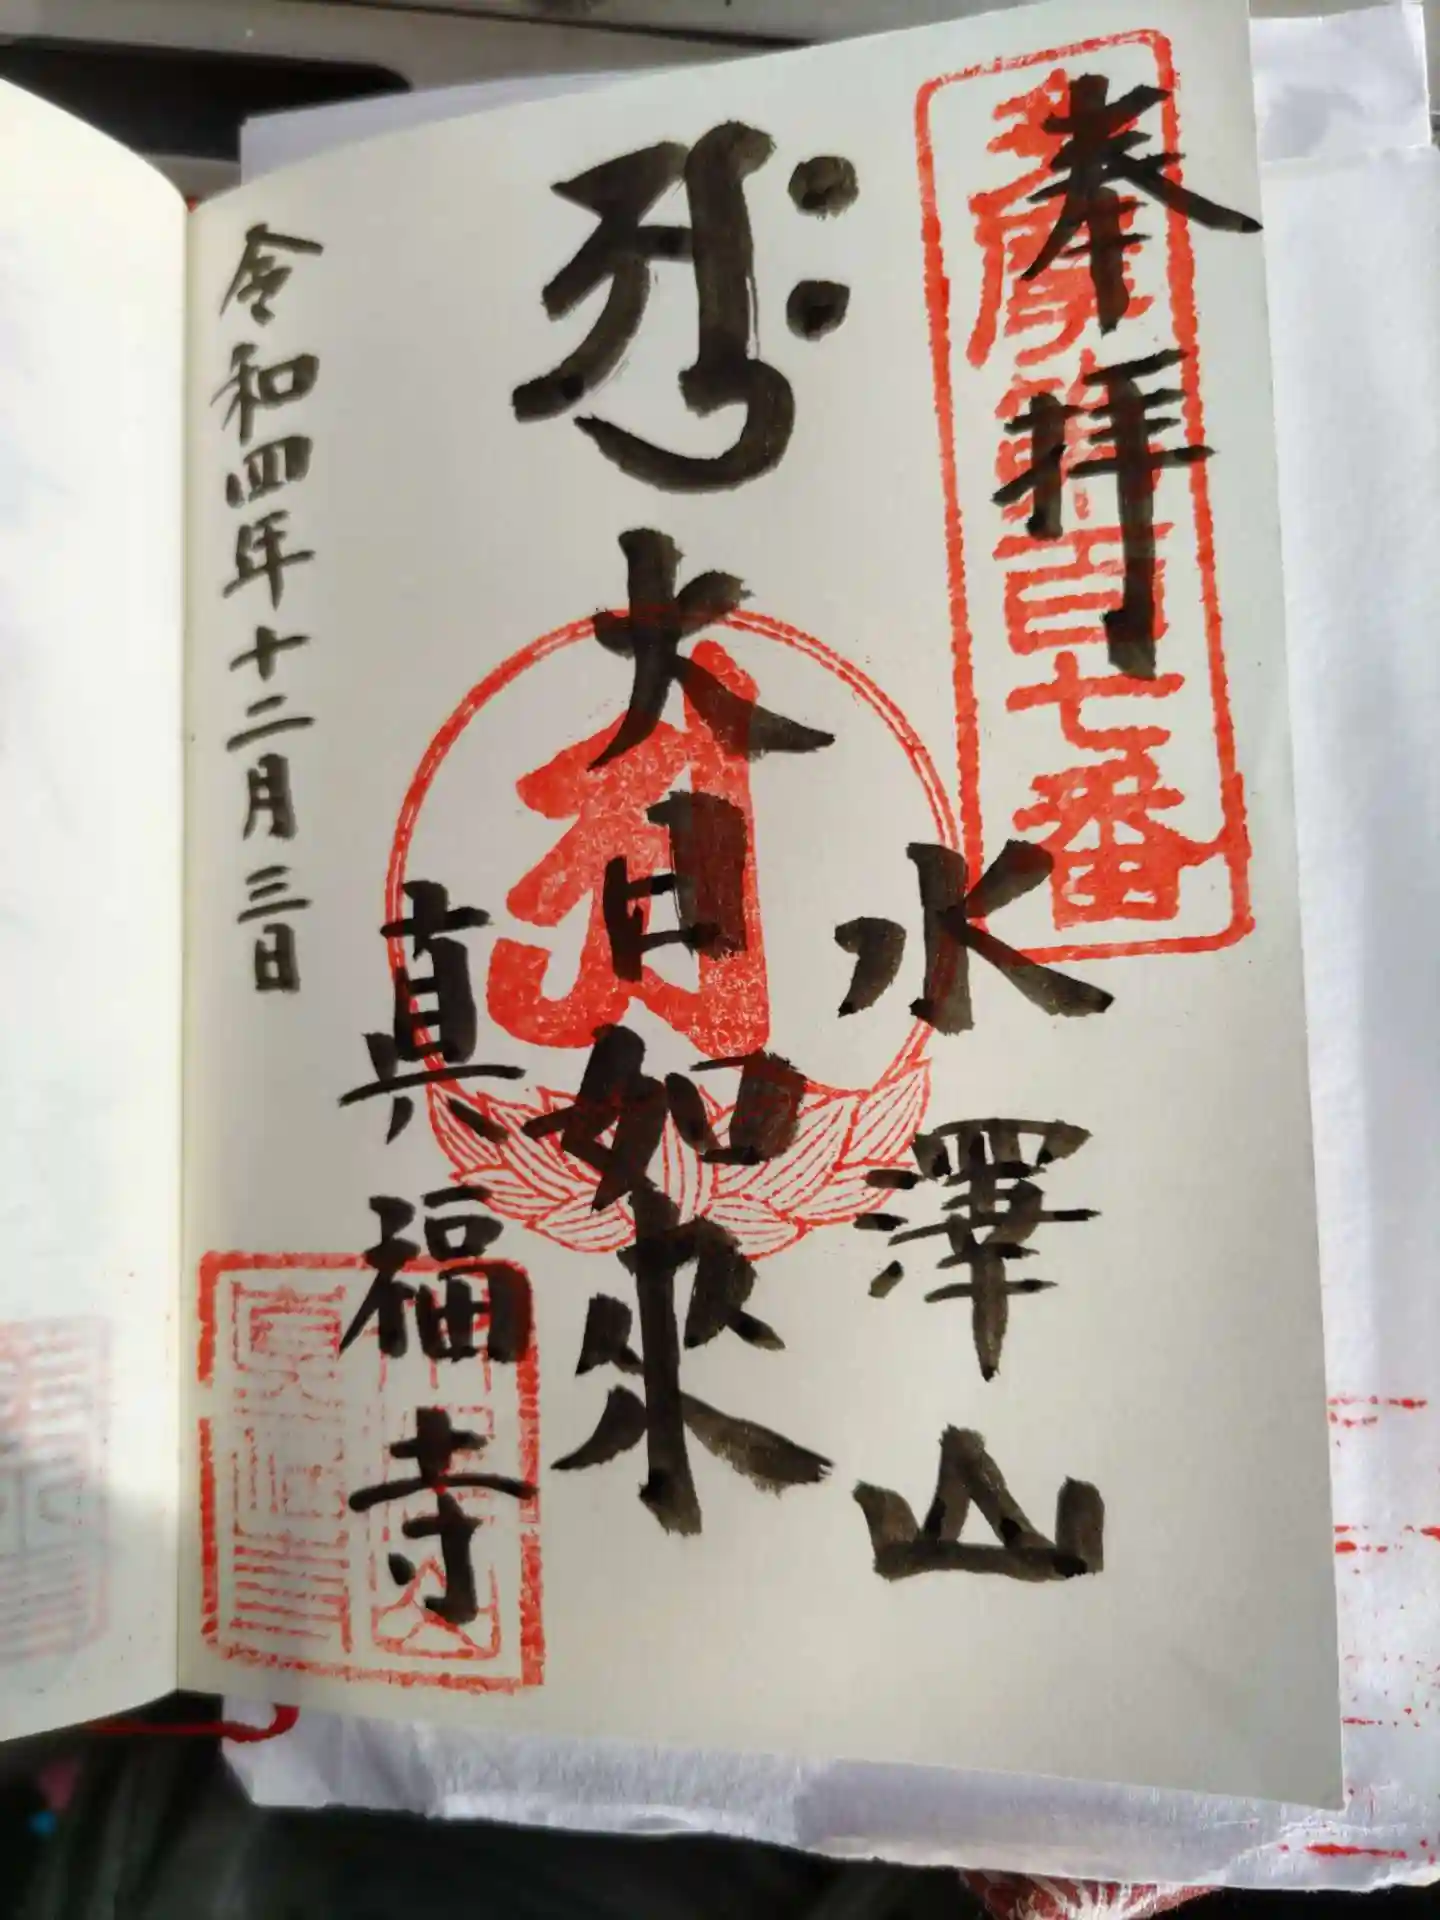 奉拝
多摩第百七番
水澤山
大日如來
真福寺
令和四年十二月三日